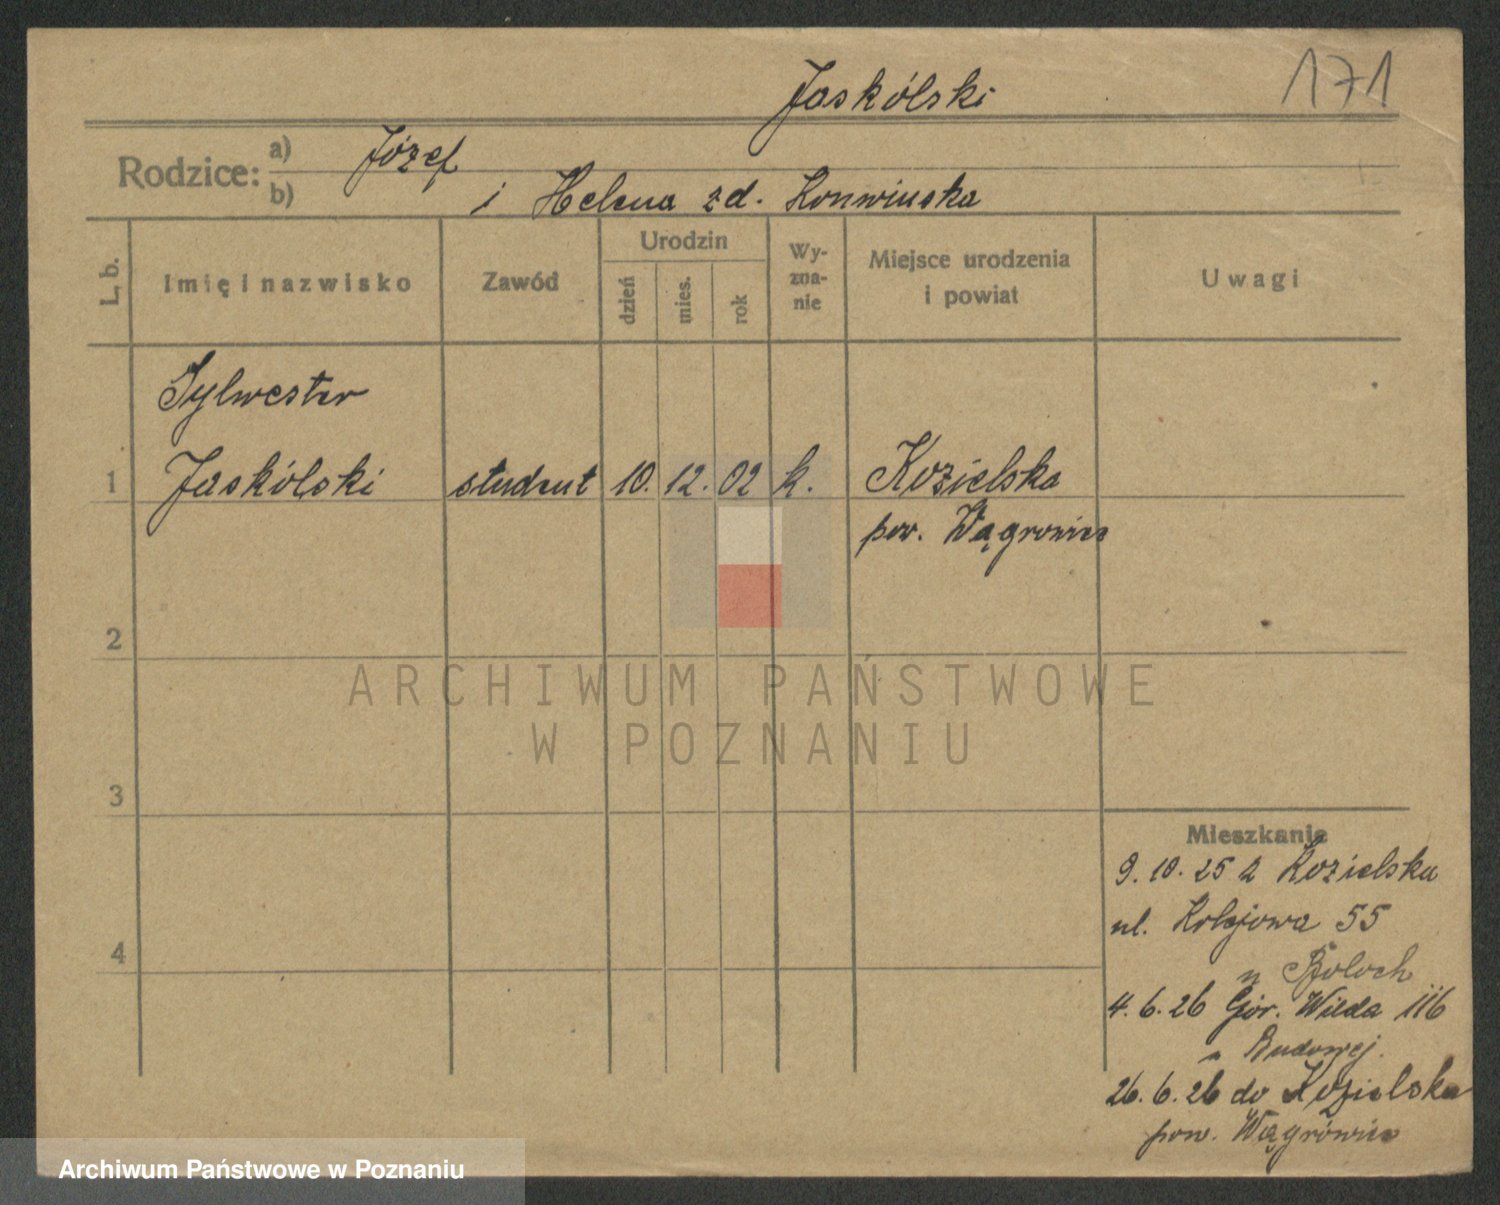 Jaskólski 171
Rodzice: a) Józef
b) i Helena zd. Konwińska
L. b. Imię i nazwisko Zawód Urodzin dzień mies. rok Wyznanie Miejsce urodzenia i powiat Uwagi
Sylwester
1 Jaskólski student 10. 12. 02 k. Kozielska
pow. Wągrowiec
2
ARCHIWUM PAŃSTWOWE
W POZNANIU
3
Mieszkanie
9. 10. 25 z Kozielska
ul. Kolejowa 55
4
u
4. 6. 26 Gór. Wilda 116
u Budowej.
26. 6. 26 do Kozielska
pow. Wągrówiec
Archiwum Państwowe w Poznaniu